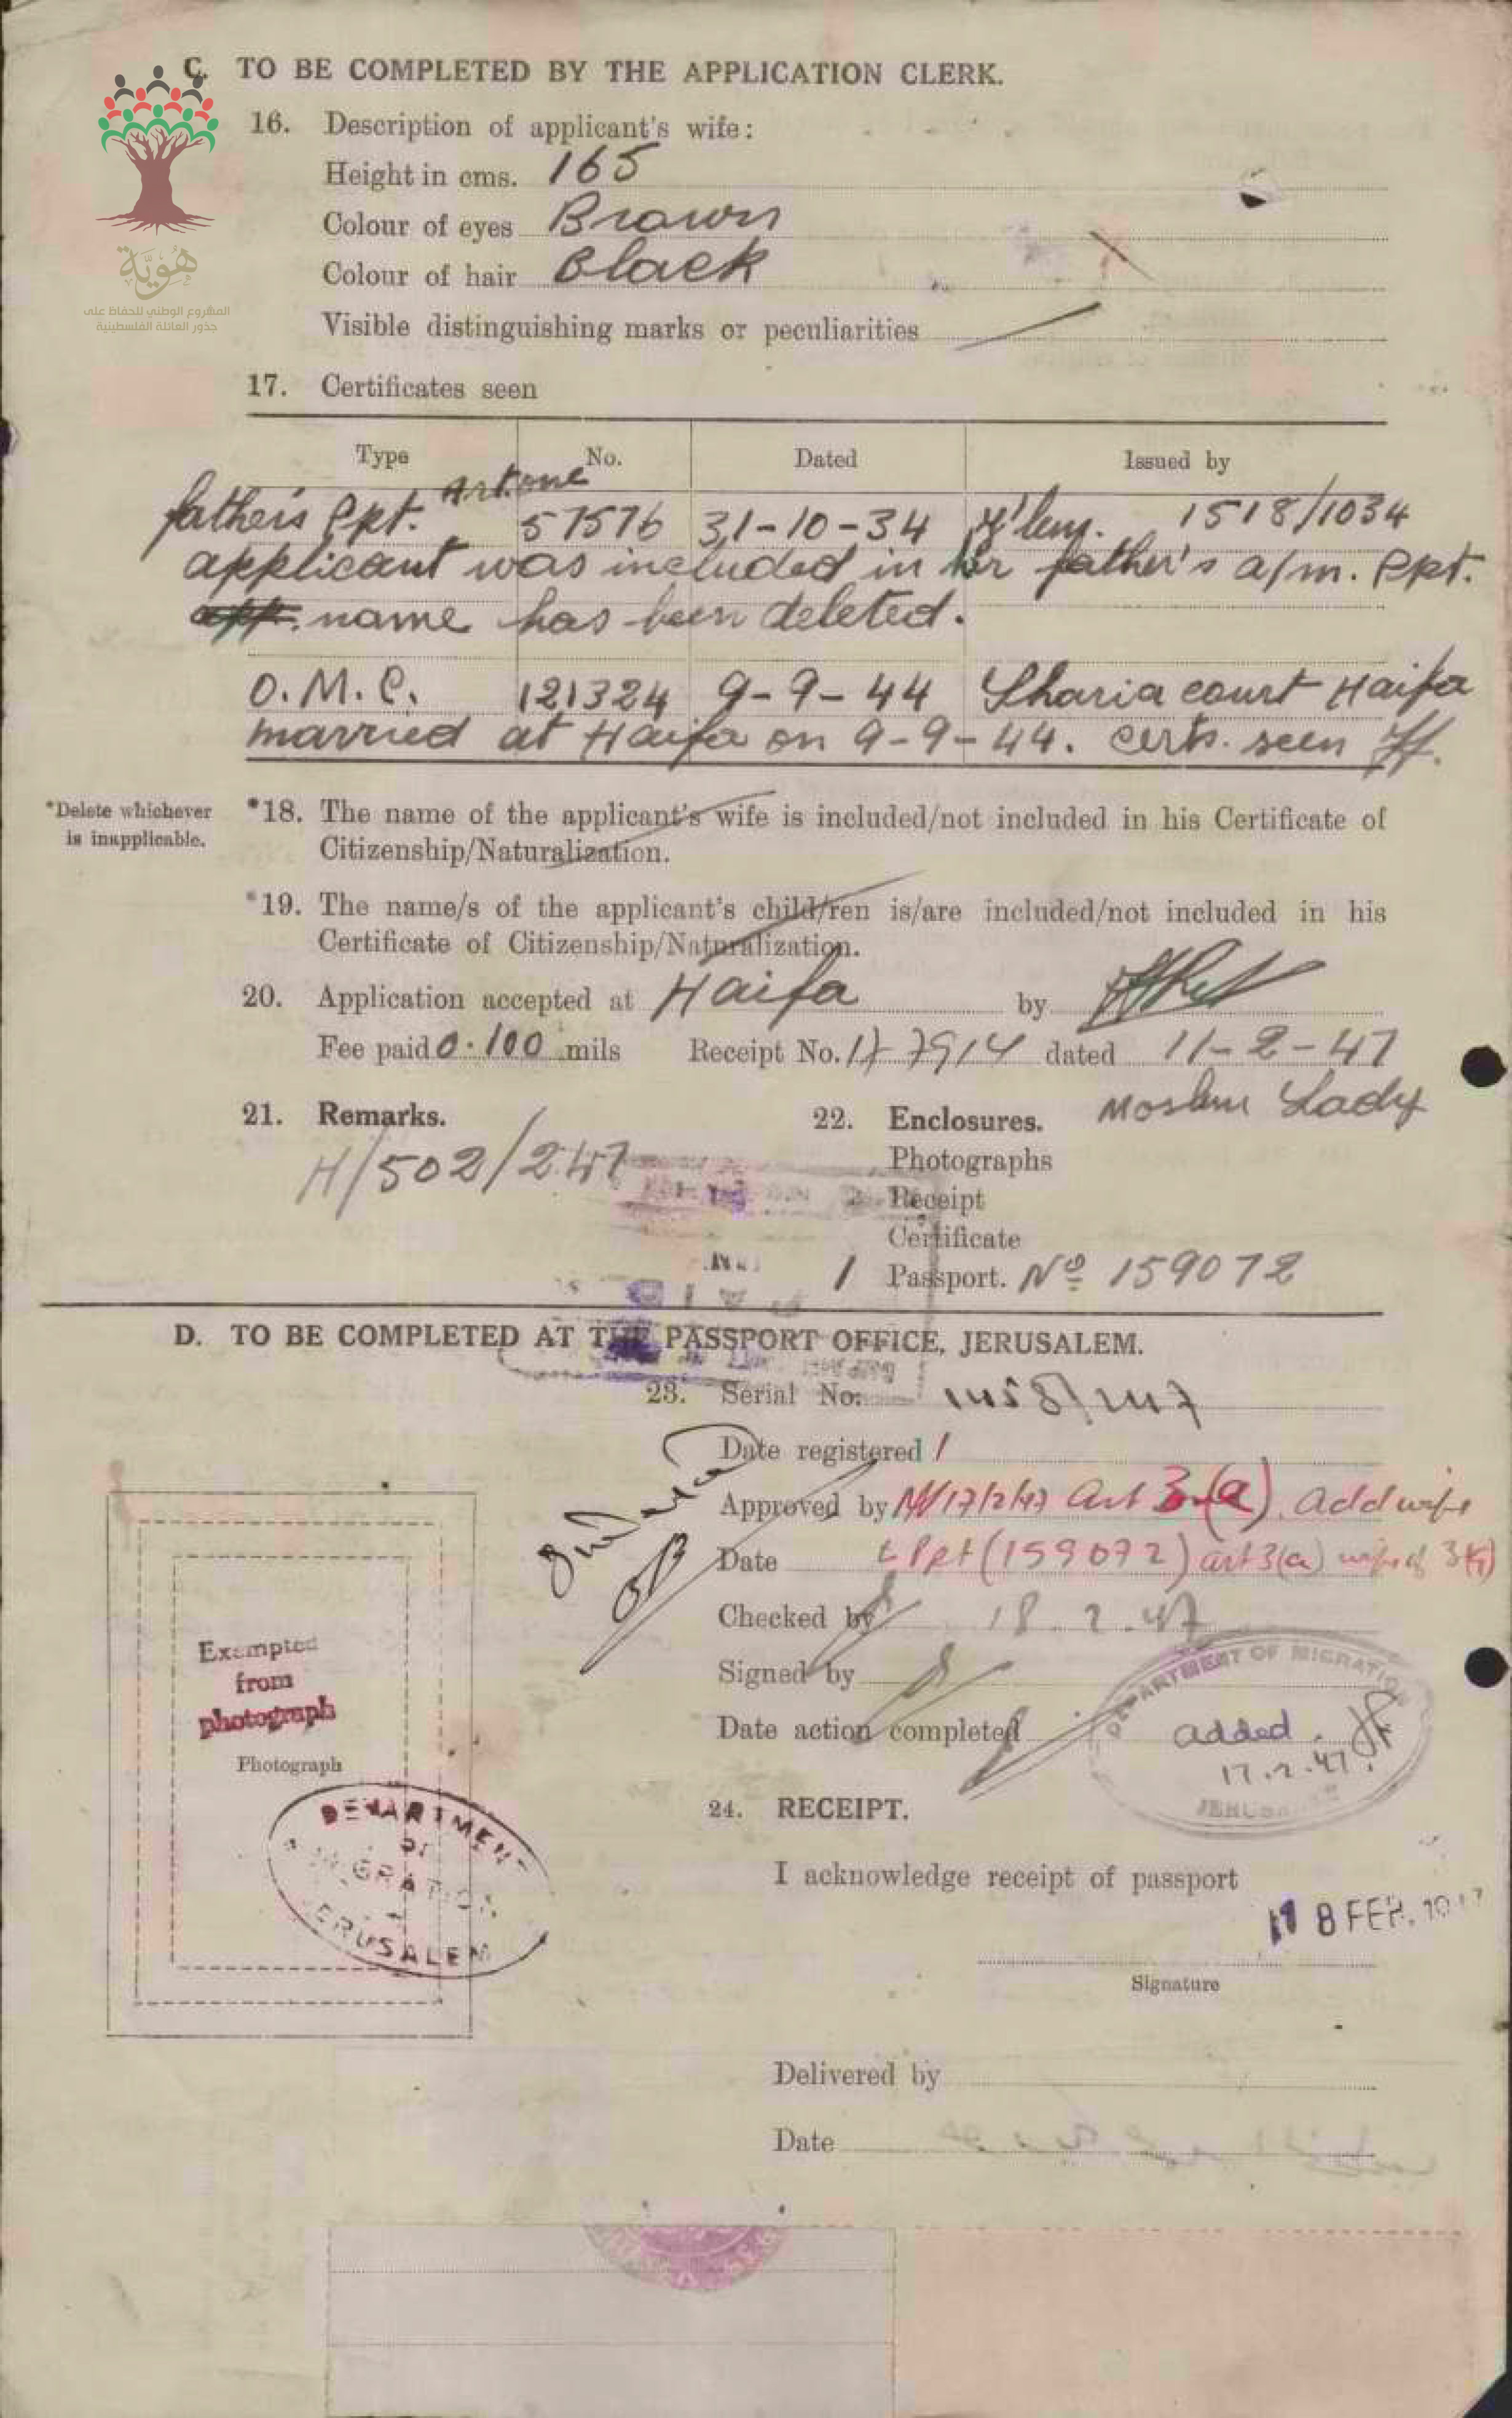 C. TO BE COMPLETED BY THE APPLICATION CLERK.
هوية
المشروع الوطني للحفاظ على
جذور العائلة الفلسطينية
16. Description of applicant's wife:
Height in cms. 165
Colour of eyes Brown
Colour of hair Black
Visible distinguishing marks or peculiarities
17. Certificates seen
Type No. Dated Issued by
father's Ppt. 57576 31-10-34 J'lem. 1518/1034
applicant was included in her father's a/m. Ppt.
name has been deleted.
O.M.C. 121324 9-9-44 Sharia court Haifa
married at Haifa on 9-9-44. certs. seen
*Delete whichever
is inapplicable.
*18. The name of the applicant's wife is included/not included in his Certificate of
Citizenship/Naturalization.
*19. The name/s of the applicant's child/ren is/are included/not included in his
Certificate of Citizenship/Naturalization.
20. Application accepted at Haifa by
Fee paid 0.100 mils Receipt No. 17 7914 dated 11-2-47
21. Remarks. 22. Enclosures. Moslem Lady
H/502/247
Photographs
Receipt
Certificate
1 Passport. No 159072
D. TO BE COMPLETED AT THE PASSPORT OFFICE, JERUSALEM.
23. Serial No. 1458/247
Date registered
Approved by 17/2/47 Art 3 (a). Add wife
Date Ppt (159072) art 3(a) wife of
Checked by 18.2.47
Signed by
Date action completed
DEPARTMENT OF MIGRATION
added
17.2.47.
JERUSALEM
Exempted
from
photograph
Photograph
DEPARTMENT
OF
MIGRATION
JERUSALEM
24. RECEIPT.
I acknowledge receipt of passport
18 FEB. 1947
Signature
Delivered by
Date